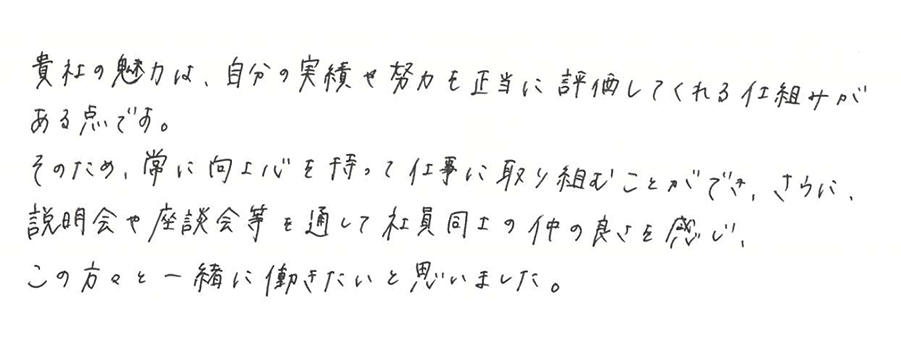 貴社の魅力は、自分の実績や努力を正当に評価してくれる仕組みが
ある点です。
そのため、常に向上心を持って仕事に取り組むことができ、さらに、
説明会や座談会等を通して社員同士の仲の良さを感じ、
この方々と一緒に働きたいと思いました。